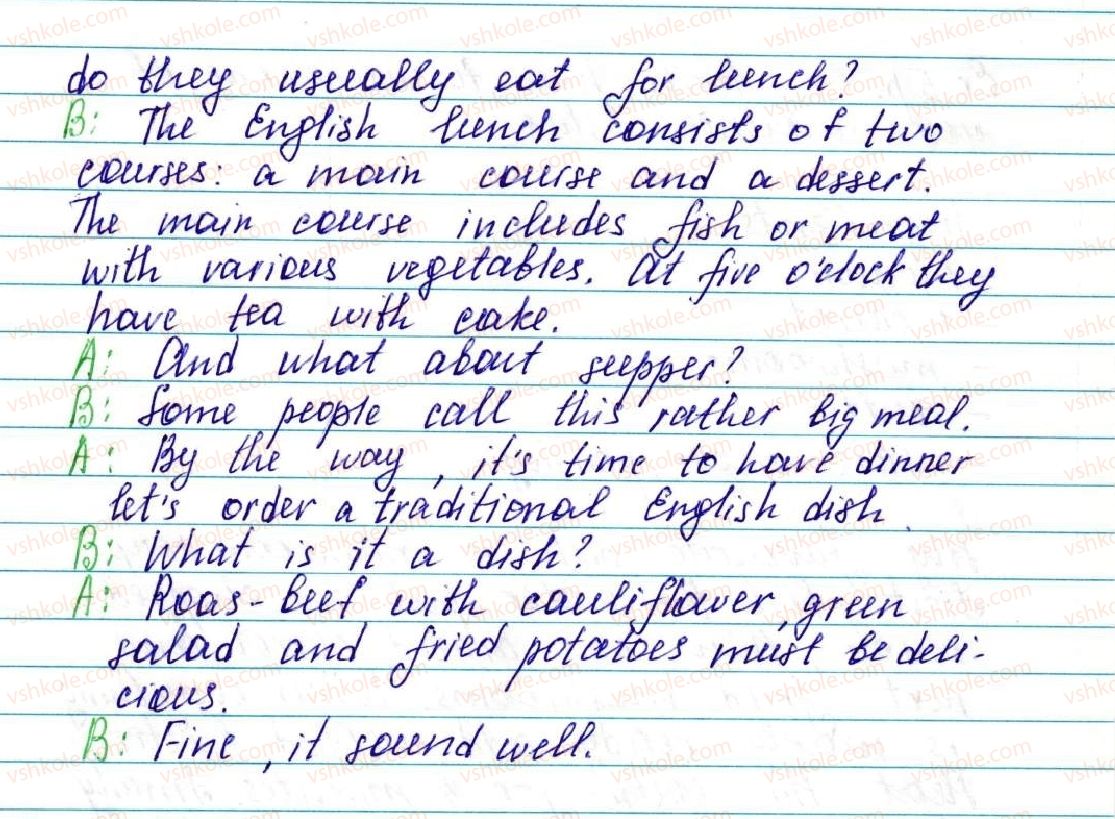 do they usually eat for lunch?
B: The English lunch consists of two
courses: a main course and a dessert.
The main course includes fish or meat
with various vegetables. At five o'clock they
have tea with cake.
A: And what about supper?
B: Some people call this rather big meal.
A: By the way, it's time to have dinner
let's order a traditional English dish.
B: What is it a dish?
A: Roas-beef with cauliflower, green
salad and fried potatoes must be deli-
cious.
B: Fine, it sound well.